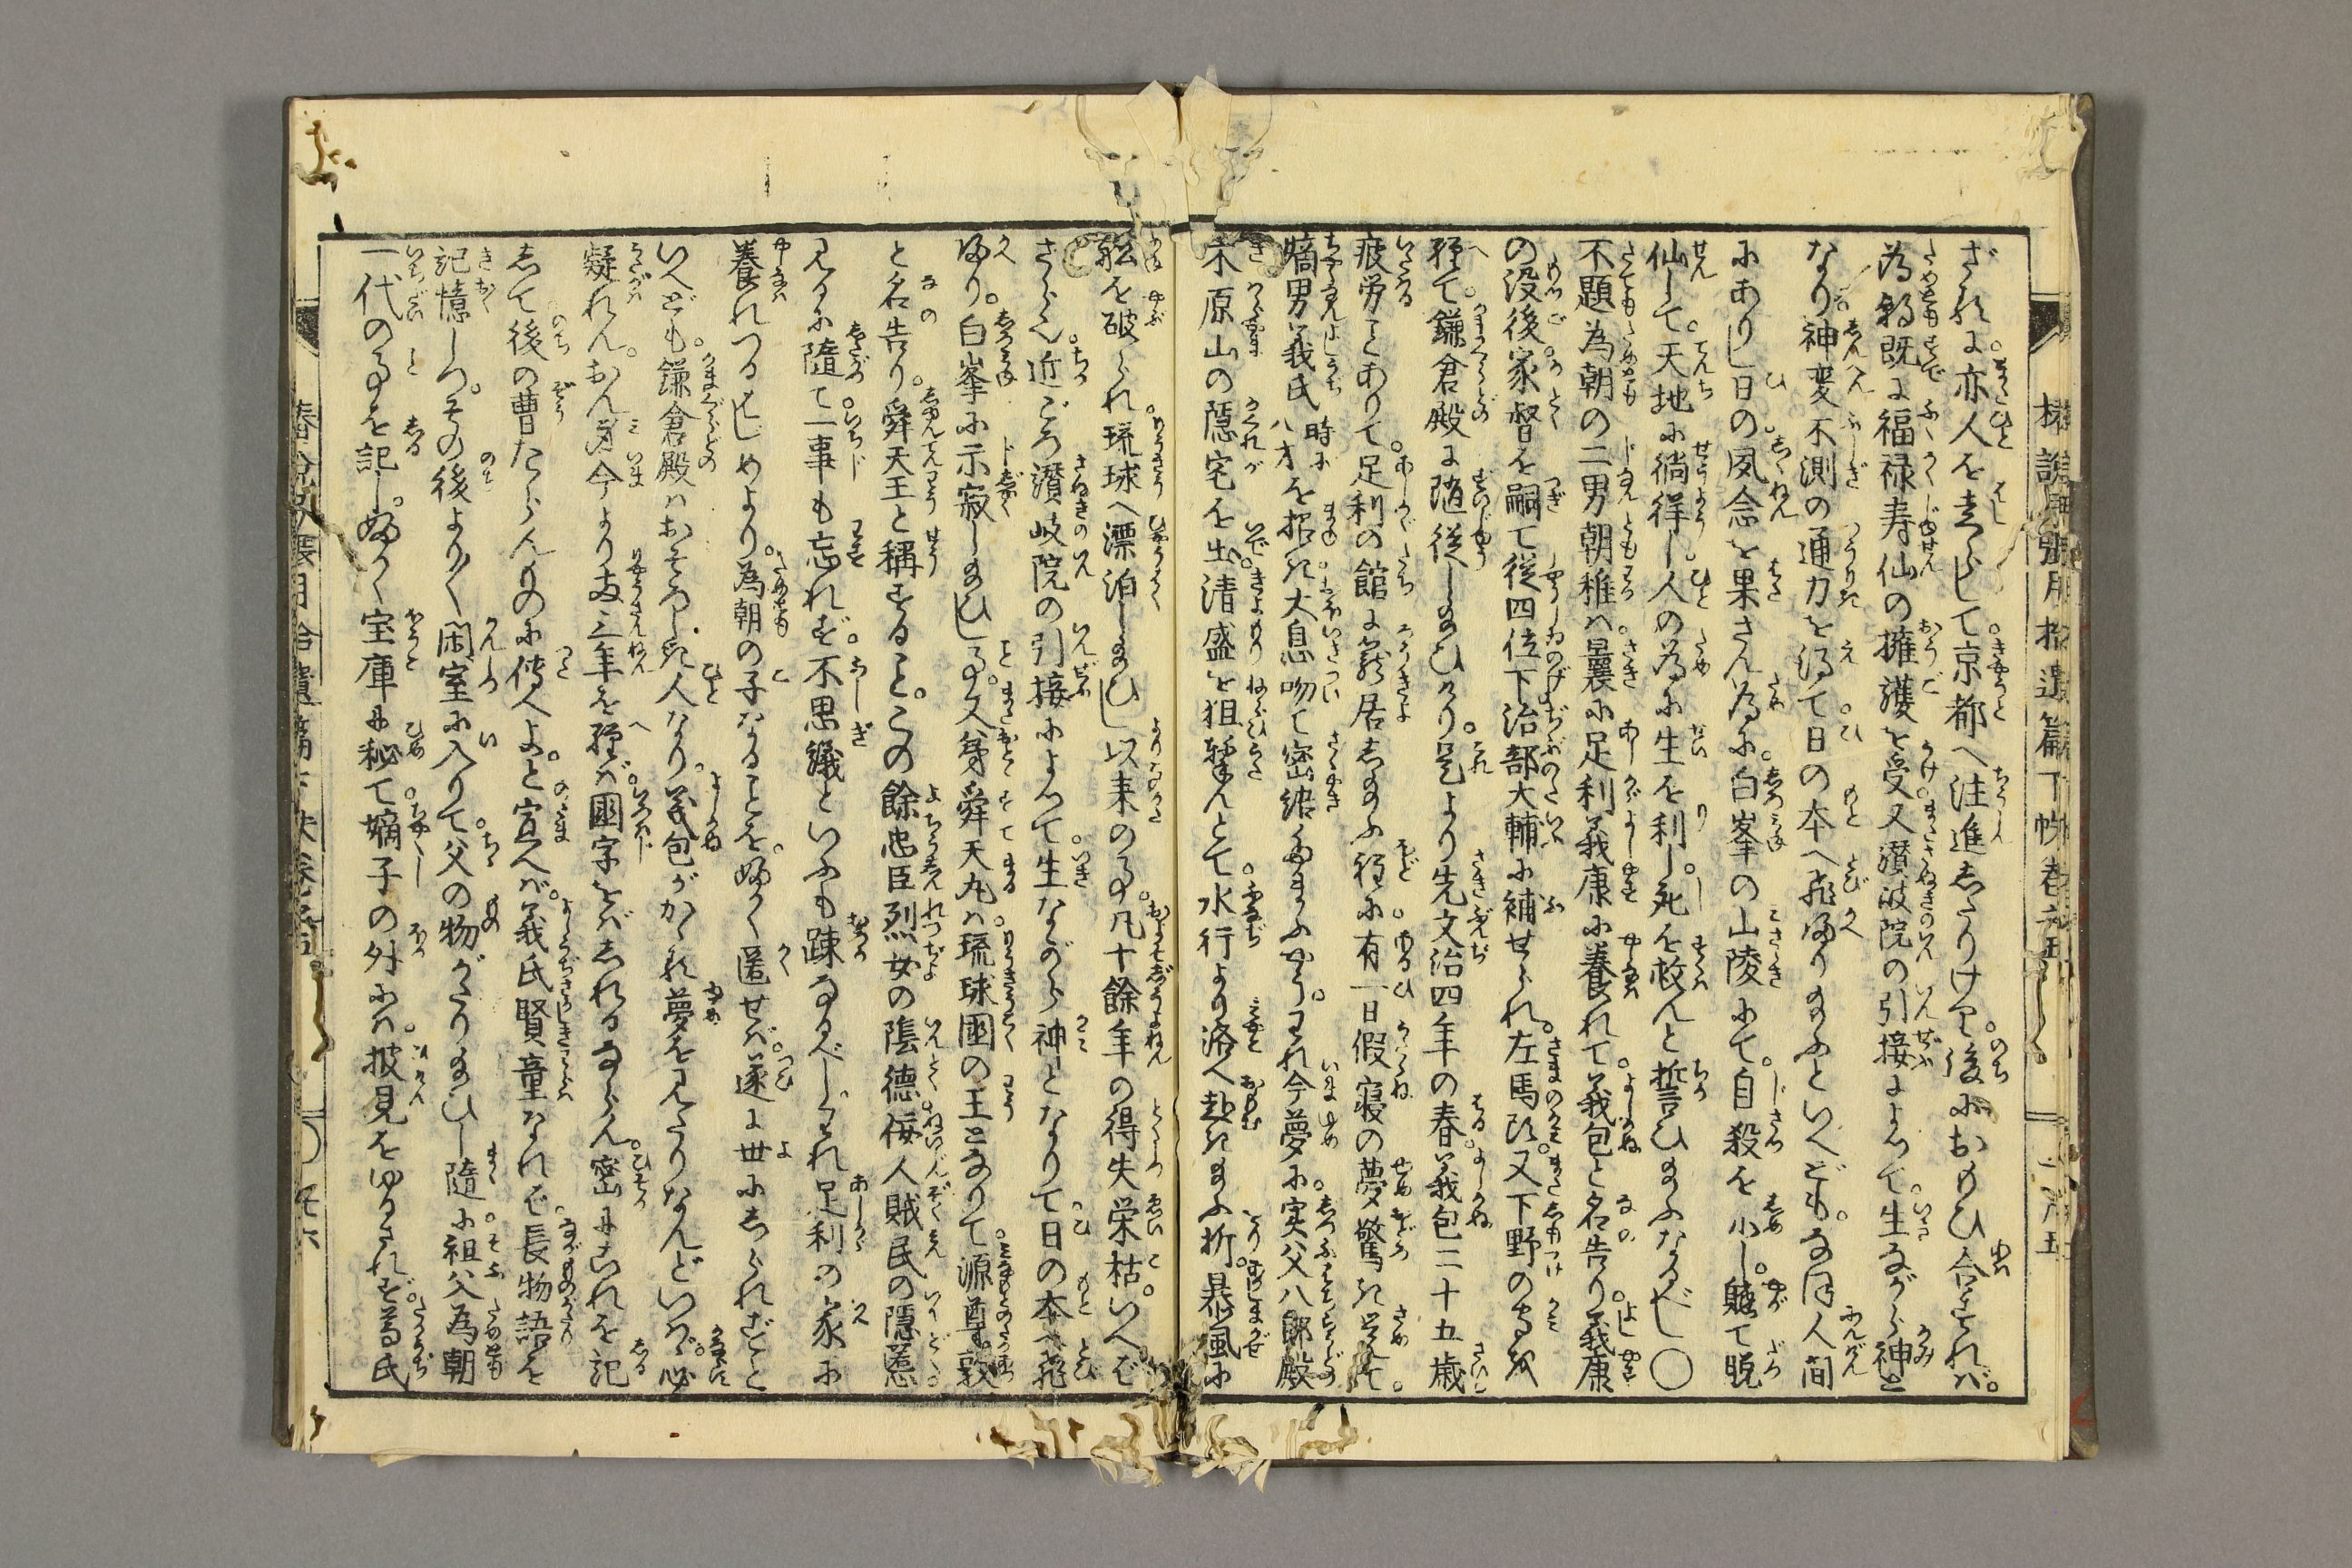 ざれは亦人を走らして京都へ注進したりけり。後におもひ合すれば。
為朝既に福禄寿仙の擁護を受又讃岐院の引接によつて。生ながら神と
なり神変不測の通力を得て。日の本へ飛帰り給ふといへども。なほ人間
にありし日の夙念を果さん為に。白峯の山陵にて。自殺を示し。軀て脱
仙して。天地に徜徉し。人の為に生を利し。死を救んと誓ひ給ふなるべし〇
不題為朝の二男朝稚は。曩に足利義康に養れて。義包と名告り。義康
の没後。家督を嗣て従四位下治部大輔に補せられ。左馬頭。又下野の守を
経て。鎌倉殿に随従し給ひけり。是より先文治四年の春。義包三十五歳
疲労ことありて。足利の館に籠居し給ふ程に。有一日假寝の夢驚き覚て。
嫡男義氏時に八才を招き。大息吻て密語給ふやう。われ今夢に。実父八郎殿
木原山の隠宅を出。清盛を狙撃んとて。水行より洛へ赴き給ふ折。暴風に
船を破られ。琉球へ漂泊し給ひし以来の事。凡十餘年の得失栄枯。いへば
さら也。近ごろ讃岐院の引接によつて。生ながら神となりて。日の本へ飛
帰り。白峯に示寂し給ひし事。又弟舜天丸は。琉球國の王となりて。源尊敦
と名告り。舜天王と稱すること。この餘忠臣烈女の隂徳。佞人賊民の隠慝
見るに随て。一事も忘れず。不思議といふも疎なるべし。われ足利の家に
養れつるはじめより。為朝の子なることを。ふかく匿せば。遂に世にしられずと
いへども。鎌倉殿はおそろしき人なり。義包がかゝる夢を見たりなんどいはゞ。必
疑れん。おん身今より両三年を経ば。國字をばしれるならん。密にこれを記
して後の曹たらんものに傳へよ。と宣へば。義氏賢童なれば。長物語を
記憶しつ。その後より〳〵閑室に入りて。父の物がたり給ひし随に。祖父為朝
一代の事を記し。ふかく宝庫に秘て。嫡子の外には。披見をゆるされず。尊氏